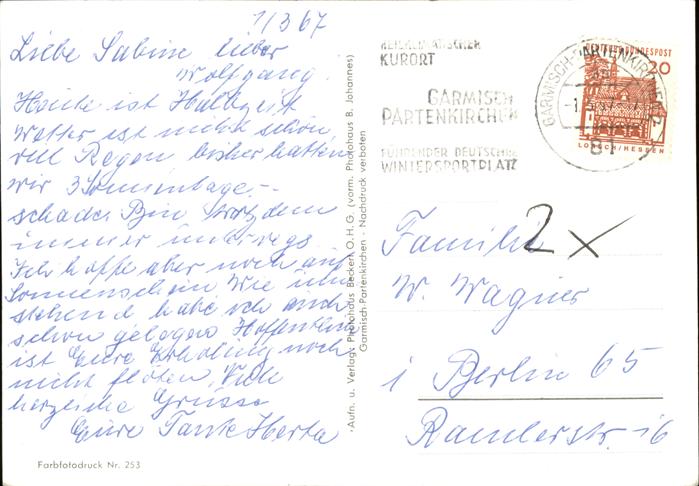 1/3 67
Liebe Sabine lieber
Wolfgang.
Heute ist Halbzeit
Wetter ist nicht schön,
viel Regen bisher hatten
wir 3 Sonnentage.-
schade. Bin trotzdem
immer unterwegs
Ich hoffe aber noch auf
Sonnenschein Wie
stehend habe ich auch
schon gelegen Hoffentlich
ist Eure Erholung noch
nicht flöten Viele
herzliche Grüsse
Eure Tante Herta
Farbfotodruck Nr. 253
Aufn. u. Verlag: Photohaus Beckert O. H. G. (vorm. Photohaus B. Johannes)
Garmisch-Partenkirchen · Nachdruck verboten
HEILKLIMATISCHER
KURORT
GARMISCH
PARTENKIRCHEN
FÜHRENDER DEUTSCHER
WINTERSPORTPLATZ
GARMISCH-PARTENKIRCHEN
81
DEUTSCHE BUNDESPOST
20
LORSCH/HESSEN
2 x
Familie
W. Wagner
i Berlin 65
Ramlerstr. 16